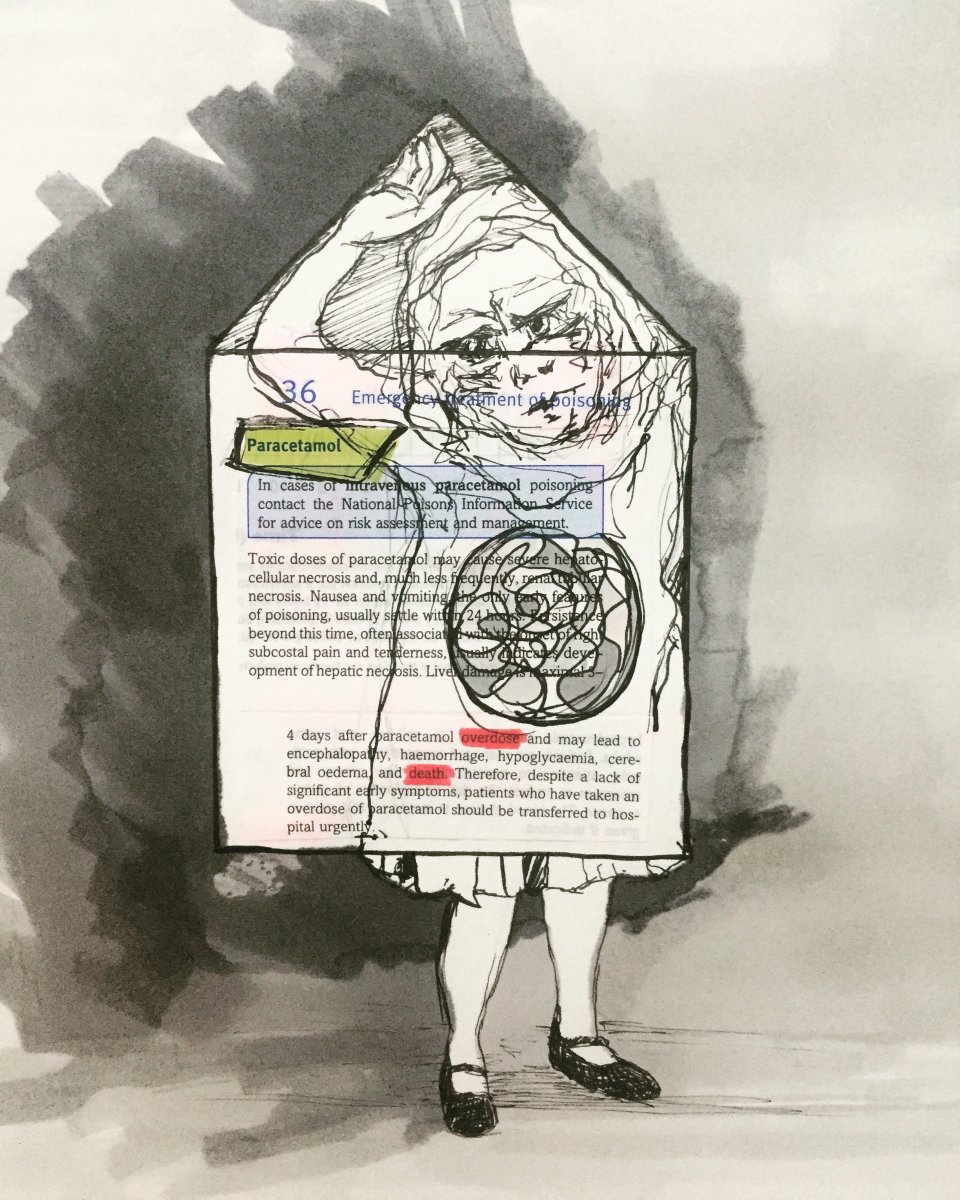 36
Emergency treatment of poisoning
Paracetamol
In cases of intravenous paracetamol poisoning
contact the National Poisons Information Service
for advice on risk assessment and management.
Toxic doses of paracetamol may cause severe hepato-
cellular necrosis and, much less frequently, renal tubular
necrosis. Nausea and vomiting, the only early features
of poisoning, usually settle within 24 hours. Persistence
beyond this time, often associated with the onset of right
subcostal pain and tenderness, usually indicates devel-
opment of hepatic necrosis. Liver damage is maximal 3–
4 days after paracetamol overdose and may lead to
encephalopathy, haemorrhage, hypoglycaemia, cere-
bral oedema, and death. Therefore, despite a lack of
significant early symptoms, patients who have taken an
overdose of paracetamol should be transferred to hos-
pital urgently.